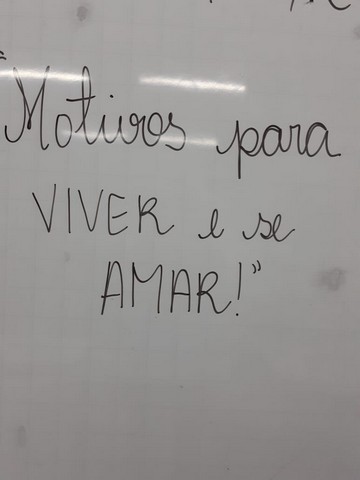 "Motivos para
VIVER e se
AMAR!"